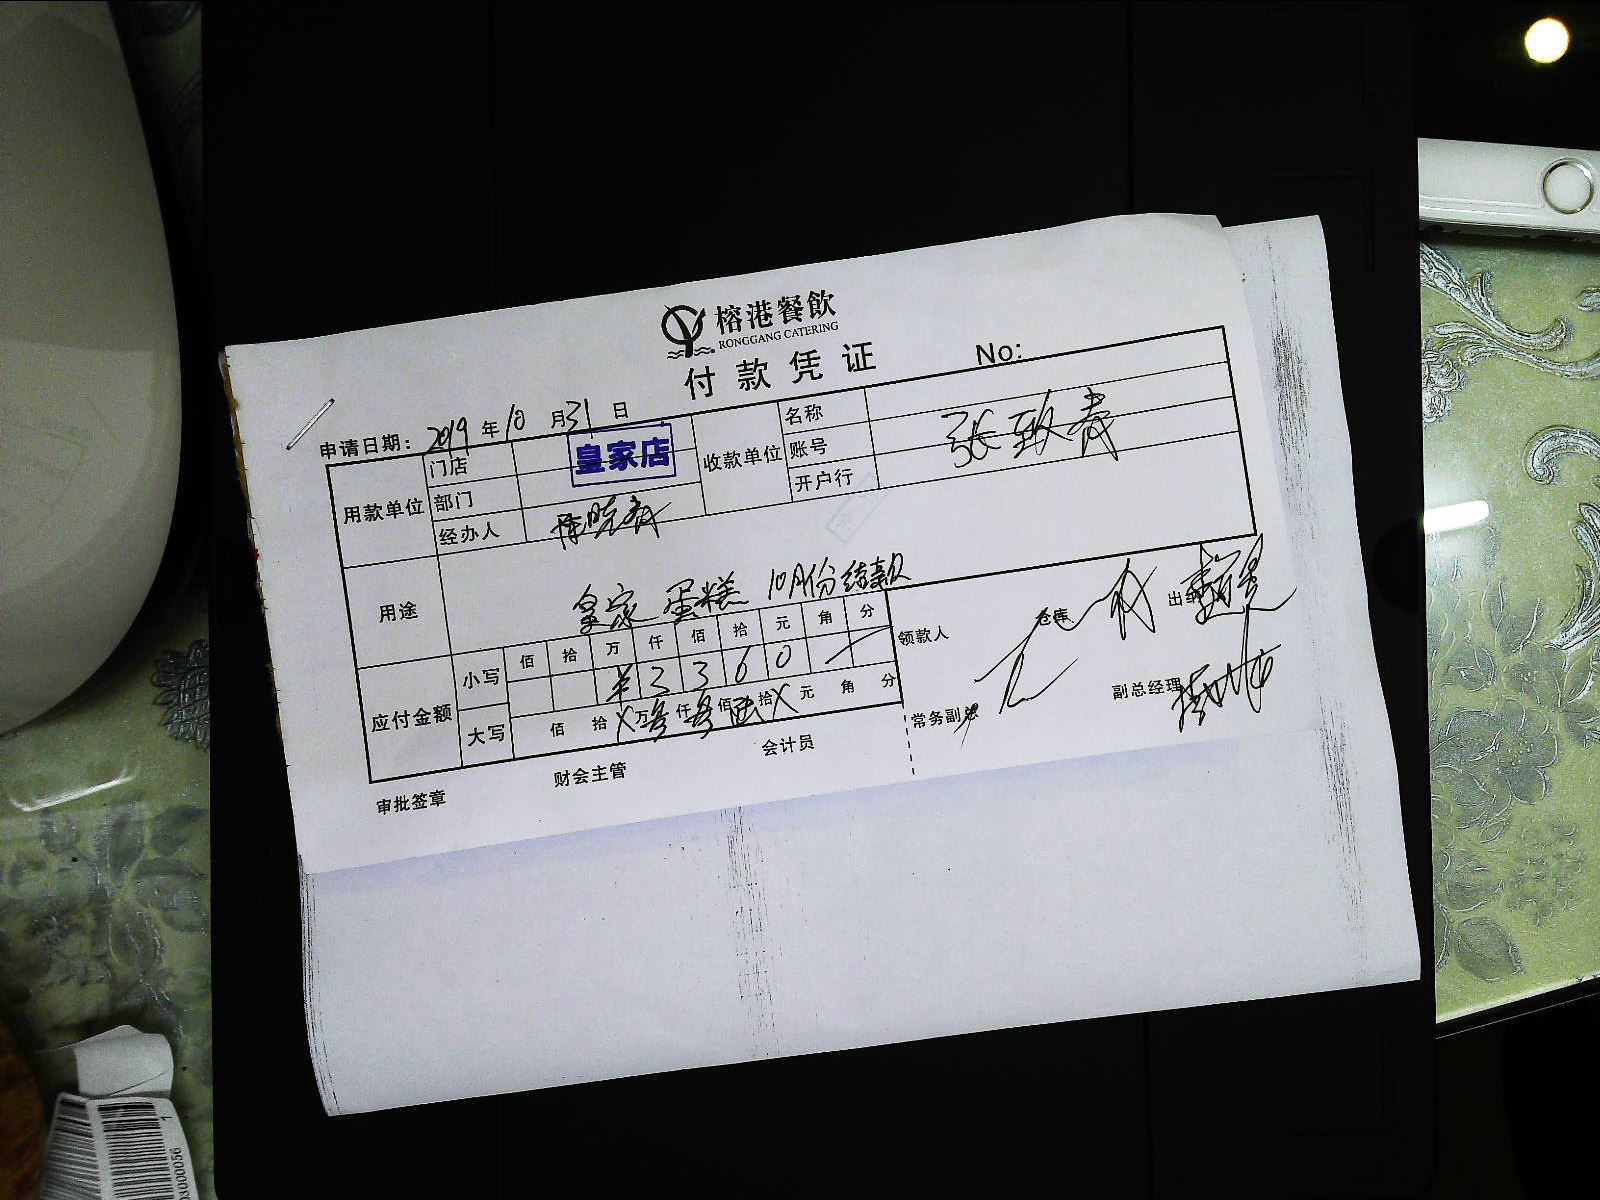 榕港餐飲
RONGGANG CATERING
付款凭证
No:
申请日期: 2019 年 10 月 31 日
用款单位 门店 皇家店
部门
经办人
收款单位 名称
账号
开户行
用途 皇家蛋糕 10月份结款
应付金额 小写 佰 拾 万 仟 佰 拾 元 角 分
¥ 3 3 6 0 —
大写 佰 拾 X 万 叁 仟 叁 佰 陆 拾 X 元 角 分
领款人
仓库
出纳
常务副总
副总经理
审批签章
财会主管
会计员